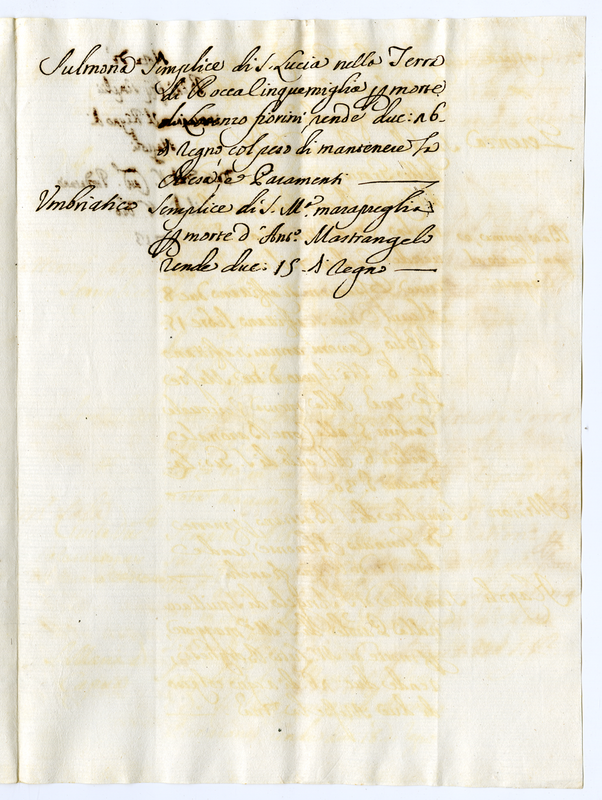 Sulmona Semplice di S. Lucia nella Terra
di Rocca Cinquemiglia p morte
di Lorenzo fiorini, rende duc: 16.
di regno col peso di mantenere la
Chiesa, e Paramenti
Umbriatico Semplice di S. Mᵃ. marapreglia
p morte d'Antᵒ. Mastrangelo
rende duc: 15 di regno